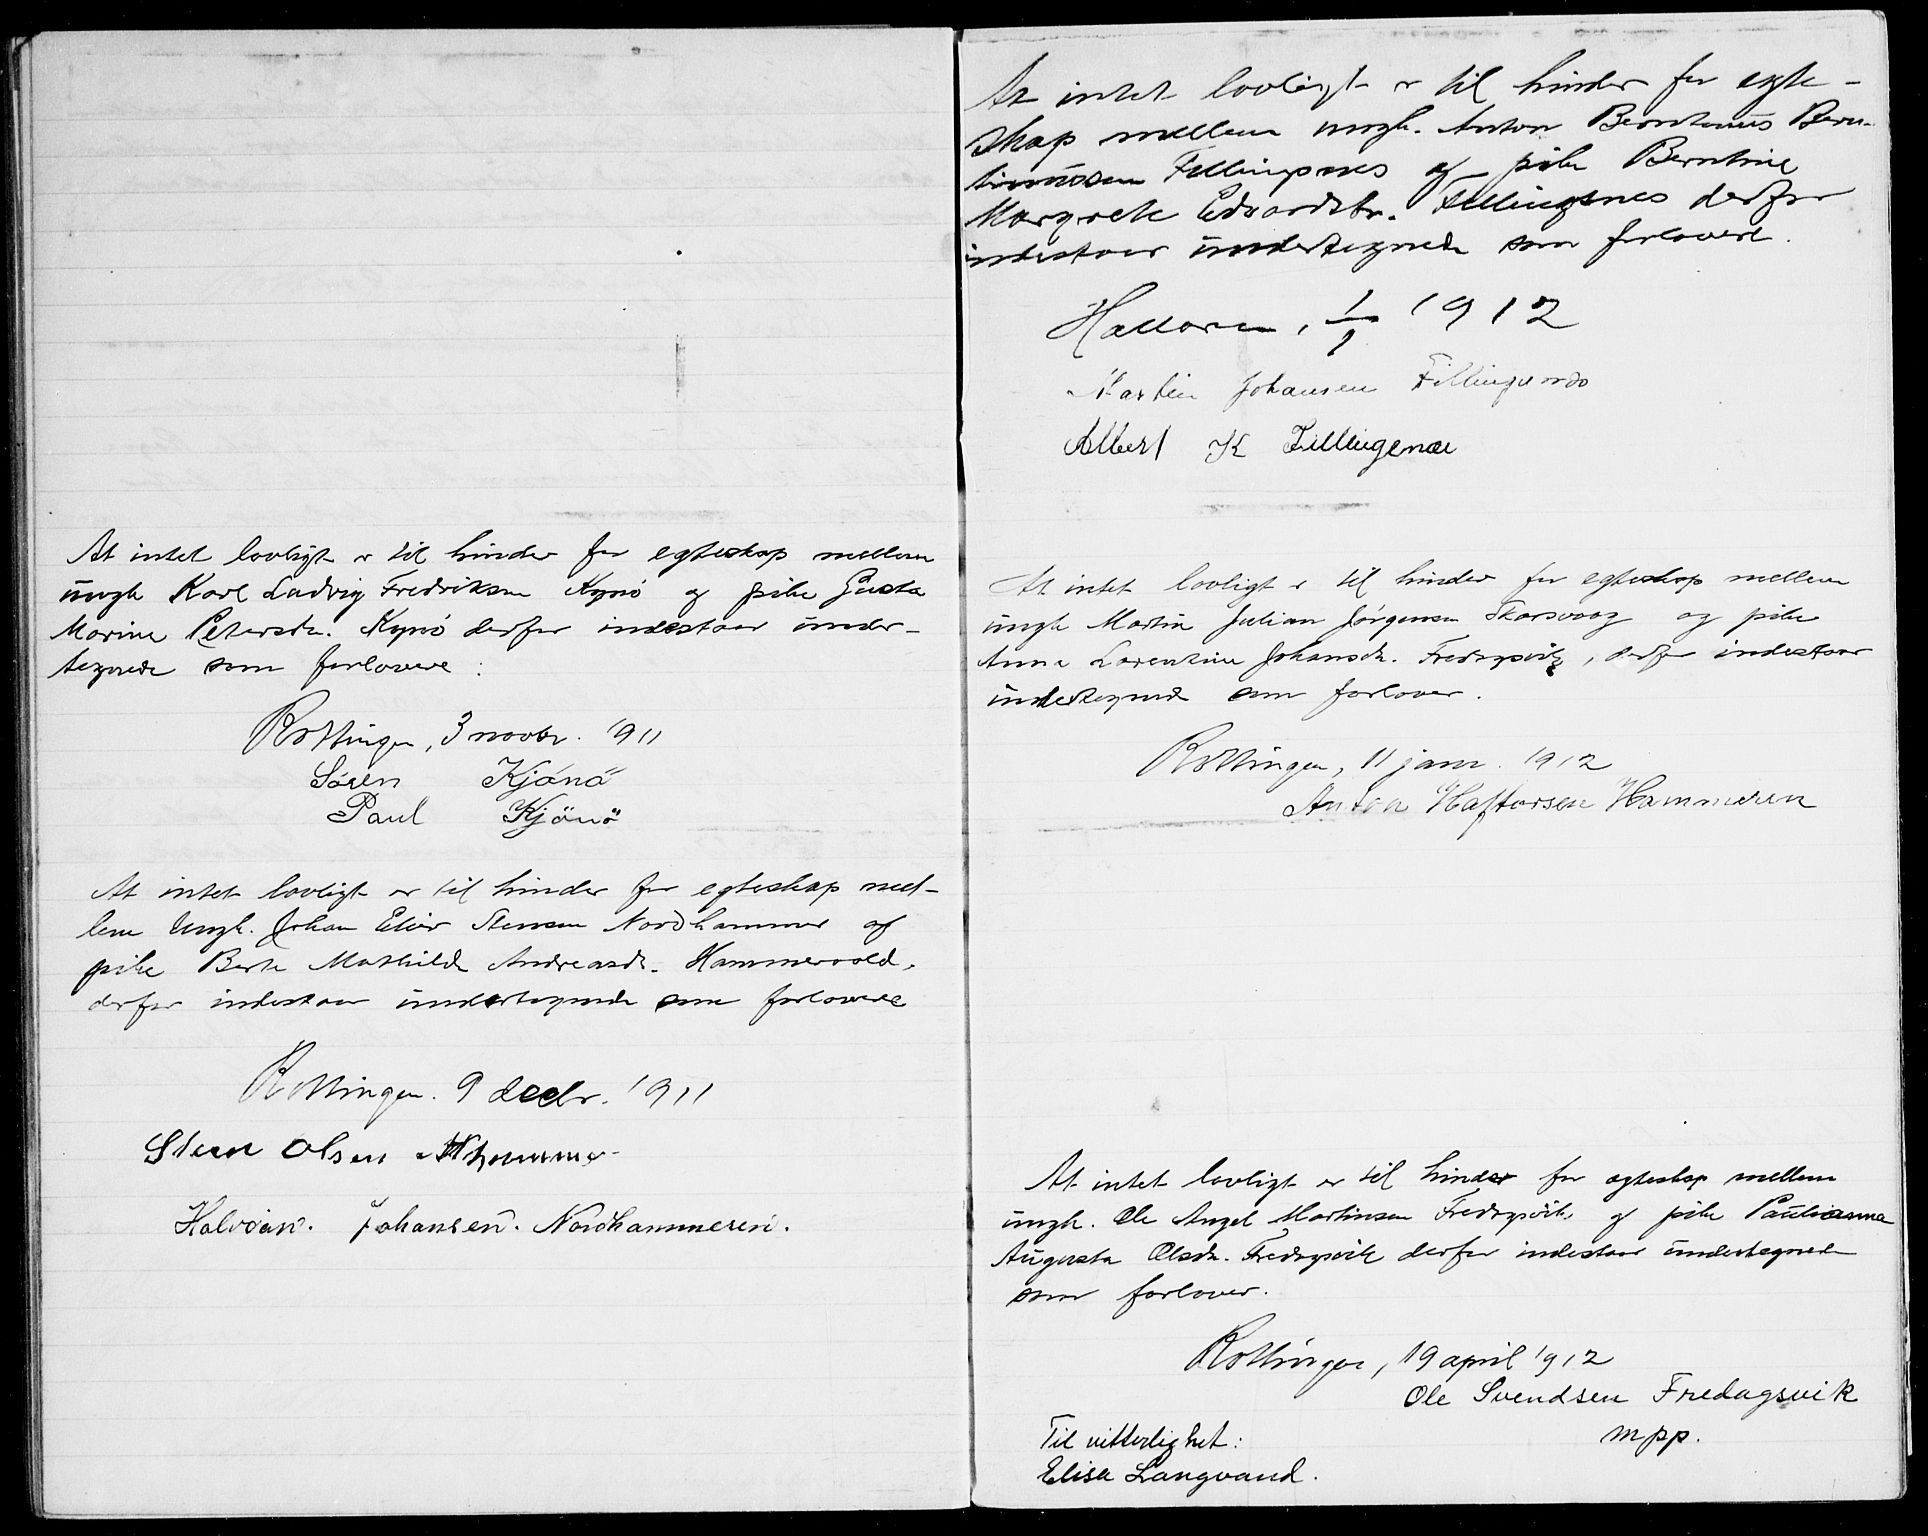 At intet lovligt er til hinder for egteskap mellem
ungk Karl Ludvig Fredriksen Kynö og pike Gusta
Marine Petersdr. Kynö derfor indestaar under-
tegnede som forlovere:
Kottingen, 3 novbr. 1911
Sören Kjönö
Paul Kjönö
At intet lovligt er til hinder for egteskap mel-
lem Ungk. Johan Stensen Nordhammer og
pike Berte Mathilde Andreasdr. Hammervold,
derfor indestaar undertegnede som forlovere
Kottingen. 9 decbr. 1911
Steen Olsen
Halvdan. Johansen. Nordhammeren.
At intet lovligt er til hinder for egte-
skap mellem ungk. Anton Berntinus Bern-
tinussen Fillingsnes og pike Berntine
Margrete Edvardsdr. Fillingsnes derfor
indestaar undertegnede som forlovere.
Hallaren, 1/1 1912
Martin Johansen Fillingsnes
Albert K Fillingsnes
At intet lovligt er til hinder for egteskap mellem
ungk Martin Julian Jörgensen Skarsvaag og pike
Anna Lorentine Johansdr. Fredagsvik, derfor indestaar
undertegnede som forlover.
Kottingen, 11 janr. 1912
Anton Haftorsen Hammeren
At intet lovligt er til hinder for egteskap mellem
ungk. Ole Angel Martinsen Fredagsvik og pike Paulianna
Augusta Olsdr. Fredagsvik derfor indestaar undertegnede
som forlover.
Kottingen, 19 april 1912
Ole Svendsen Fredagsvik
mpp.
Til vitterlighet:
Elise Langvand.